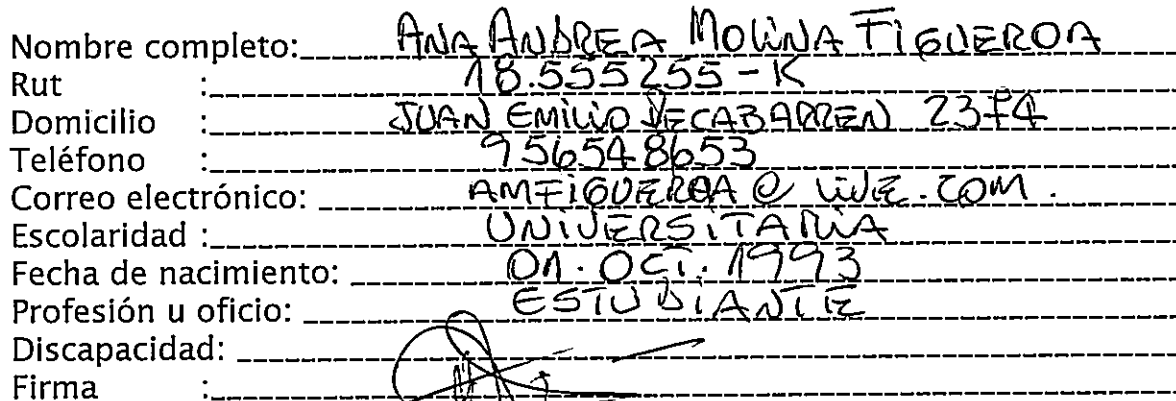 Nombre completo: ANA ANDREA MOLINA FIGUEROA
Rut : 18.555255-K
Domicilio : JUAN EMILIO RECABARREN 2374
Teléfono : 956548653
Correo electrónico: AMFIGUEROA@LIVE.COM.
Escolaridad : UNIVERSITARIA
Fecha de nacimiento: 01.OCT.1993
Profesión u oficio: ESTUDIANTE
Discapacidad:
Firma :